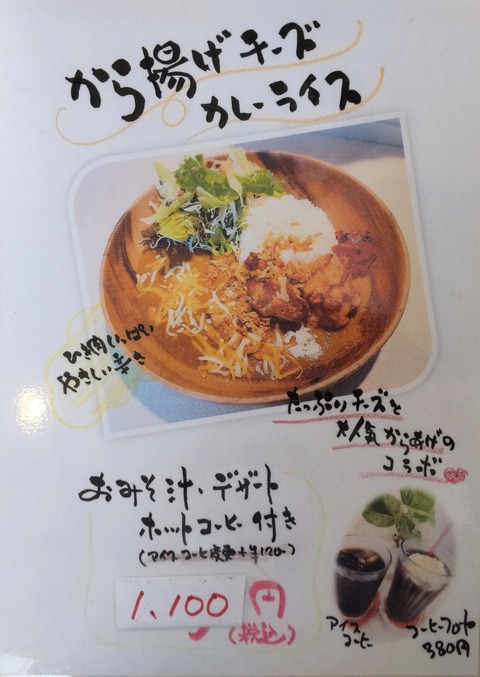 から揚げチーズ
カレーライス
ひき肉いっぱい
やさしい辛さ
たっぷりチーズと
人気から揚げの
コラボ
おみそ汁・デザート
ホットコーヒー付き
(アイスコーヒー変更+¥120-)
1,100円
(税込)
アイス
コーヒー
コーヒーフロート
380円